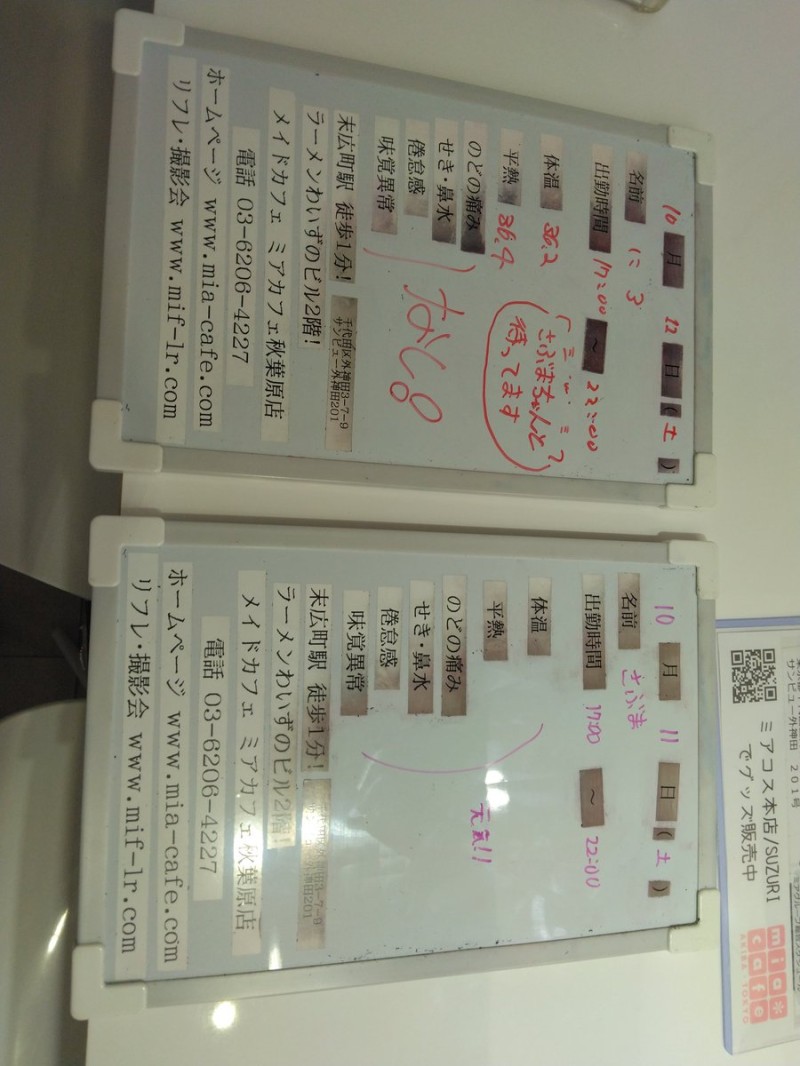 10 月 12 日 (土)
名前 にろ
出勤時間 17:00 ～ 22:00
体温 36.2
平熱 36.4
さぶまちゃんと
待ってます
のどの痛み
せき・鼻水
倦怠感
味覚異常
なし
末広町駅 徒歩1分!
千代田区外神田3-7-9
サンビュー外神田201
ラーメンわいずのビル2階!
メイドカフェ ミアカフェ秋葉原店
電話 03-6206-4227
ホームページ www.mia-cafe.com
リフレ・撮影会 www.mif-lr.com
10 月 11 日 (土)
名前 さぶま
出勤時間 17:00 ～ 22:00
体温
平熱
のどの痛み
せき・鼻水
倦怠感
味覚異常
元気!!
末広町駅 徒歩1分!
千代田区外神田3-7-9
サンビュー外神田201
ラーメンわいずのビル2階!
メイドカフェ ミアカフェ秋葉原店
電話 03-6206-4227
ホームページ www.mia-cafe.com
リフレ・撮影会 www.mif-lr.com
サンビュー外神田 201号
ミアコス本店/SUZURI
でグッズ販売中
mia*
cafe
AKIBA TOKYO